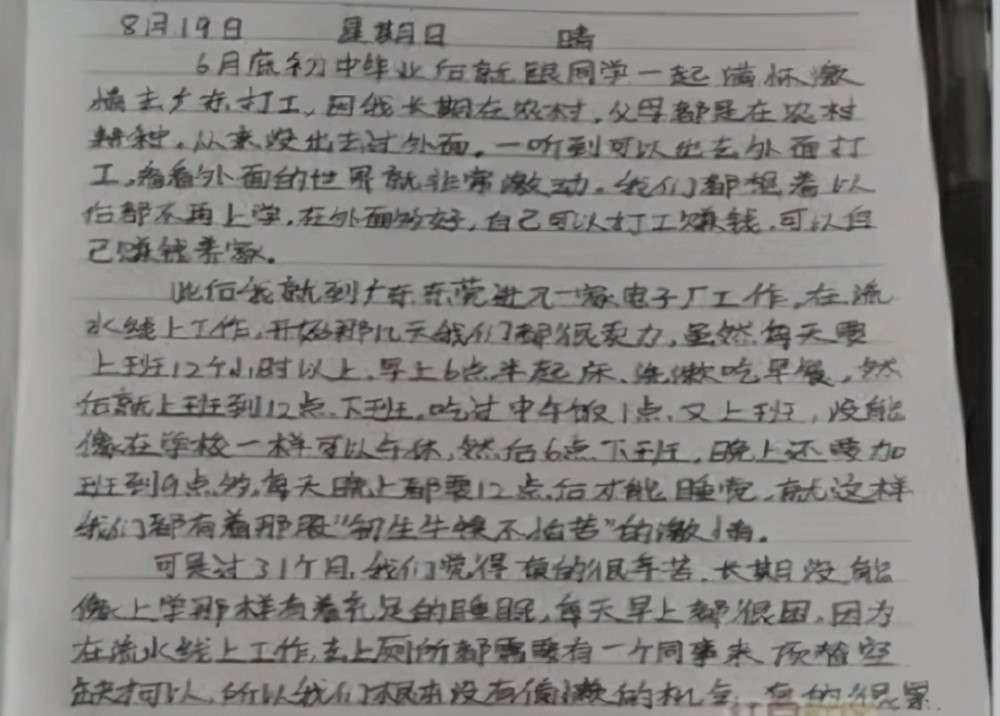 8月19日 星期日 晴
6月底初中毕业后就跟同学一起满怀激
情去广东打工,因我长期在农村,父母都是在农村
耕种,从来没出去过外面。一听到可以出去外面打
工,看看外面的世界就非常激动。我们都想着以
后都不再上学,在外面多好,自己可以打工赚钱,可以自
己赚钱养家。
此后我就到广东东莞进了一家电子厂工作,在流
水线上工作,开始那几天我们都很卖力,虽然每天要
上班12个小时以上,早上6点半起床、洗漱吃早餐,然
后就上班到12点下班,吃过中午饭1点又上班,没能
像在学校一样可以午休,然后6点下班,晚上还要加
班到9点多,每天晚上都要12点后才能睡觉,就这样
我们都有着那股"初生牛犊不怕苦"的激情。
可是过了1个月,我们觉得真的很辛苦,长期没能
像上学那样有着充足的睡眠,每天早上都很困,因为
在流水线上工作,去上厕所都需要有一个同事来顶替空
缺才可以,所以我们根本没有偷懒的机会,真的很累